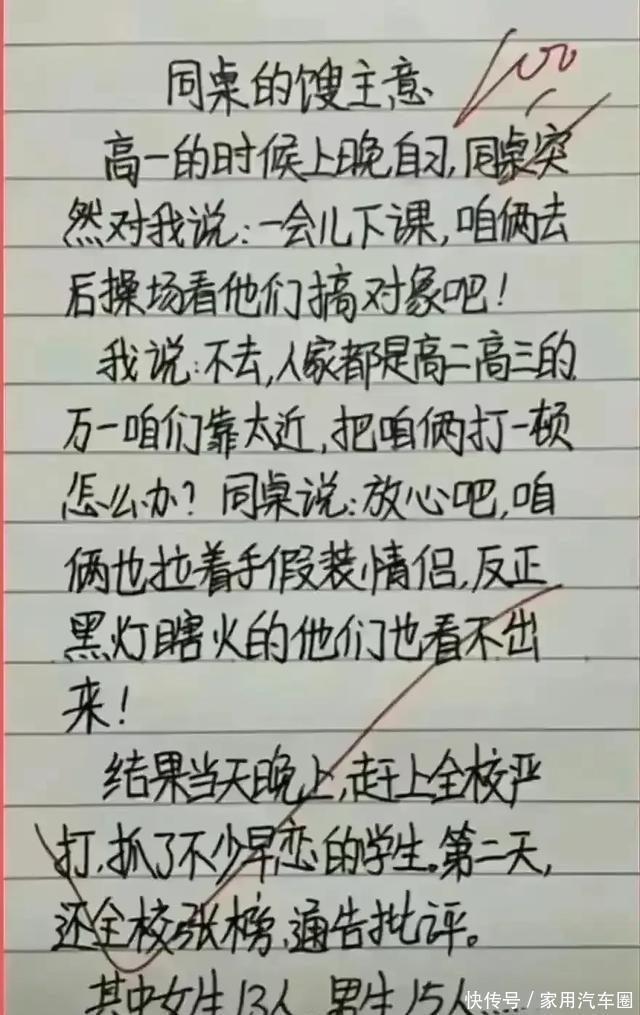 100
同桌的馊主意
高一的时候上晚自习,同桌突
然对我说:一会儿下课,咱俩去
后操场看他们搞对象吧!
我说:不去,人家都是高二高三的
万一咱们靠太近,把咱俩打一顿
怎么办?同桌说:放心吧,咱
俩也拉着手假装情侣,反正
黑灯瞎火的他们也看不出
来!
结果当天晚上,赶上全校严
打,抓了不少早恋的学生。第二天,
还全校张榜,通告批评。
其中女生13人,男生15人......
快传号/家用汽车圈